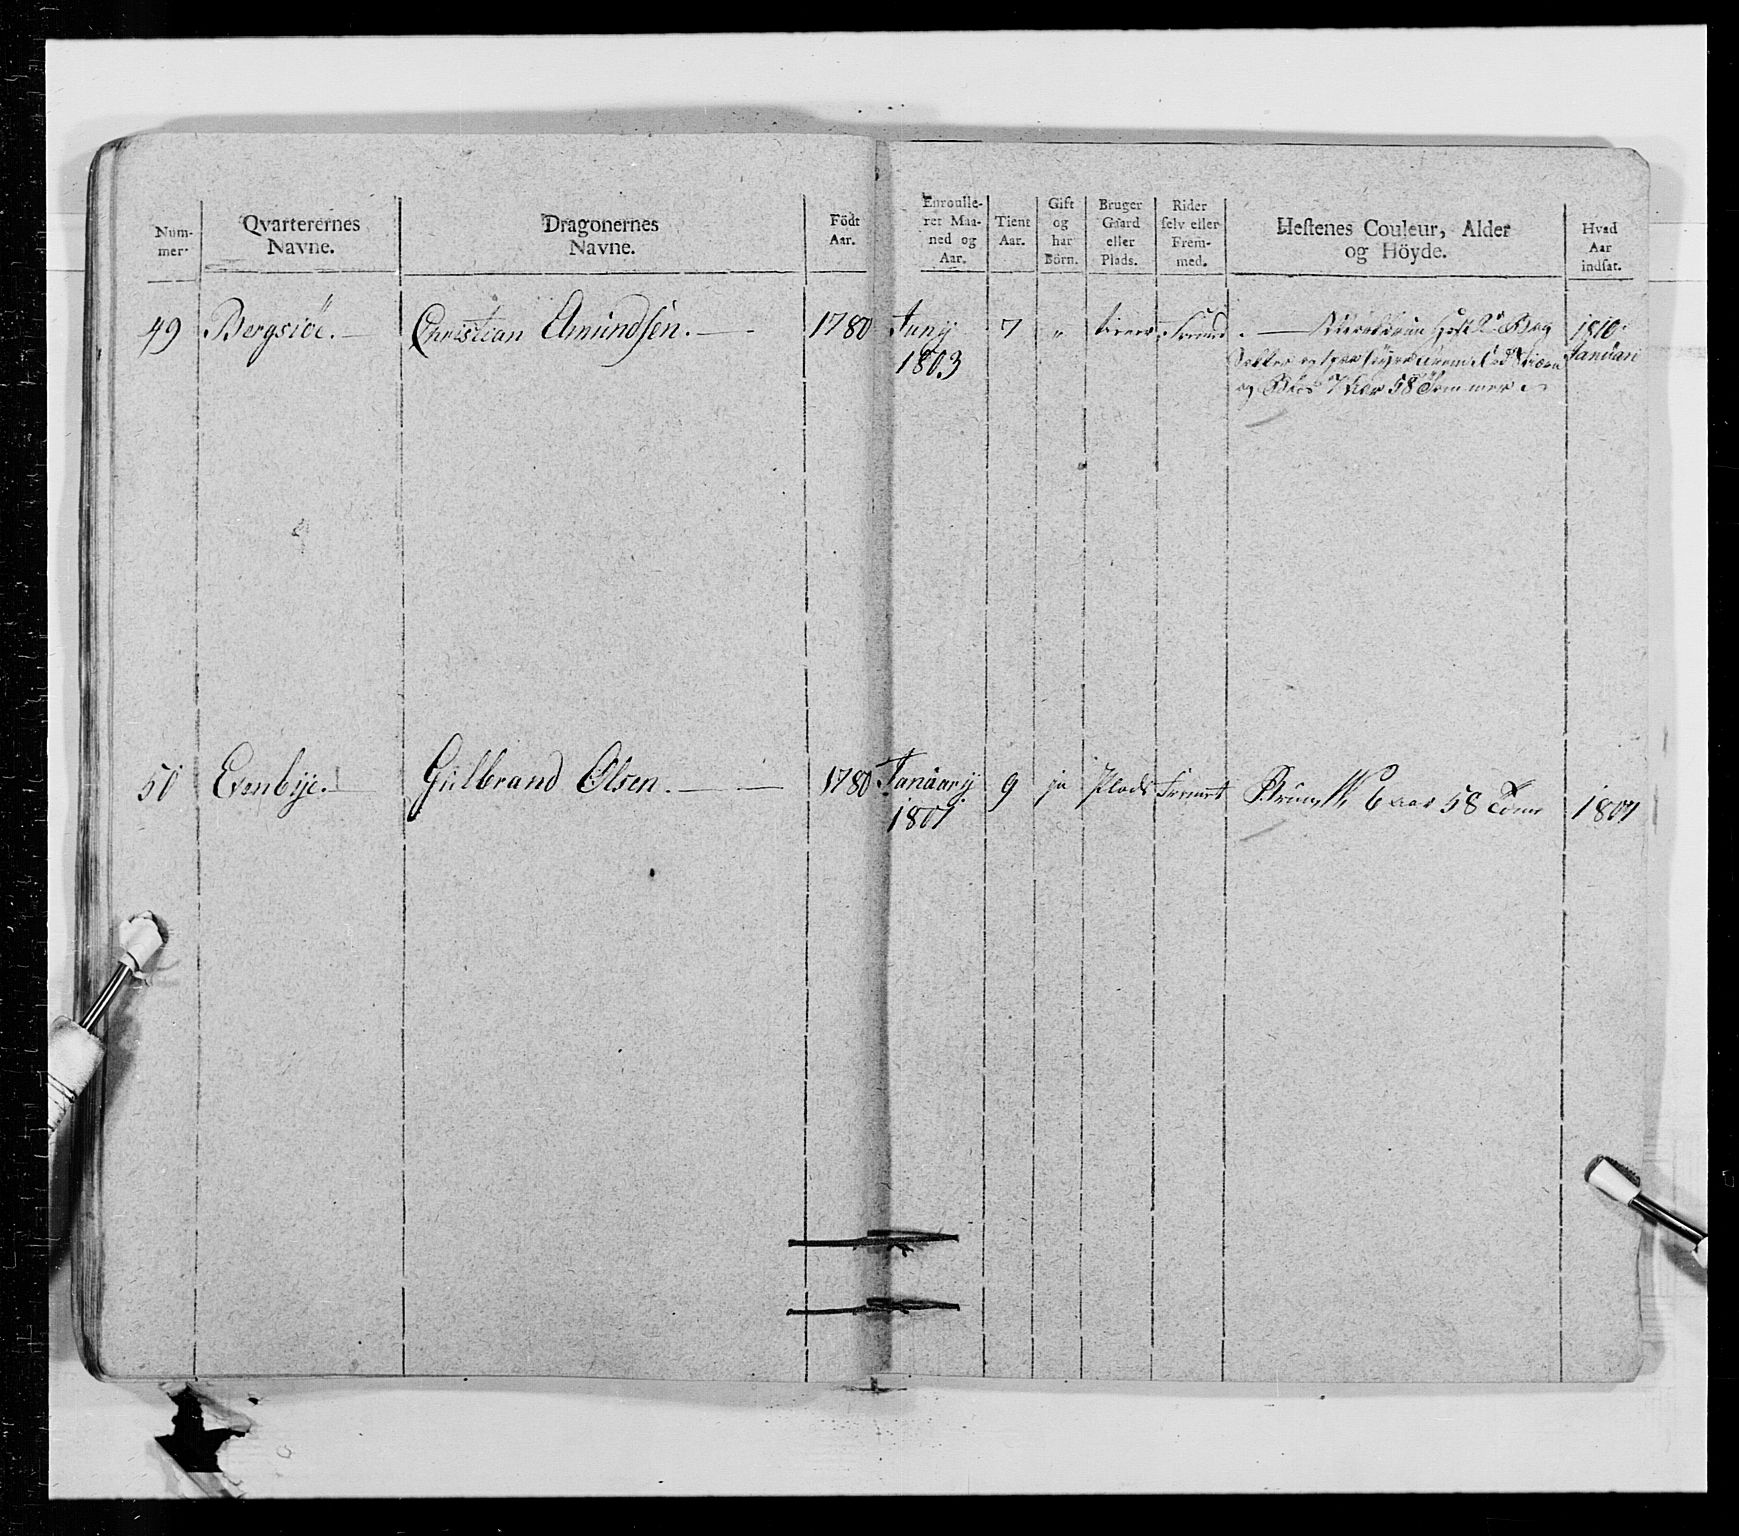 Num-
mer.
Qvarterernes
Navne.
Dragonernes
Navne.
Födt
Aar.
Enroulle-
ret Maa-
ned og
Aar.
Tient
Aar.
Gift
og
har
Börn.
Bruger
Gaard
eller
Plads.
Rider
selv eller
Frem-
med.
Hestenes Couleur, Alder
og Höyde.
Hvad
Aar
indsat.
49 Bergsiöe. — Christian Amundsen. — 1780 Juny 7 " 1810
1803 Januari
og 7 Aar 58 Tommer
50 Evenbye. — Gulbrand Olsen. — 1780 January 9 ja Plads Fremet Bruun 6 aar 58 Tome 1807
1801